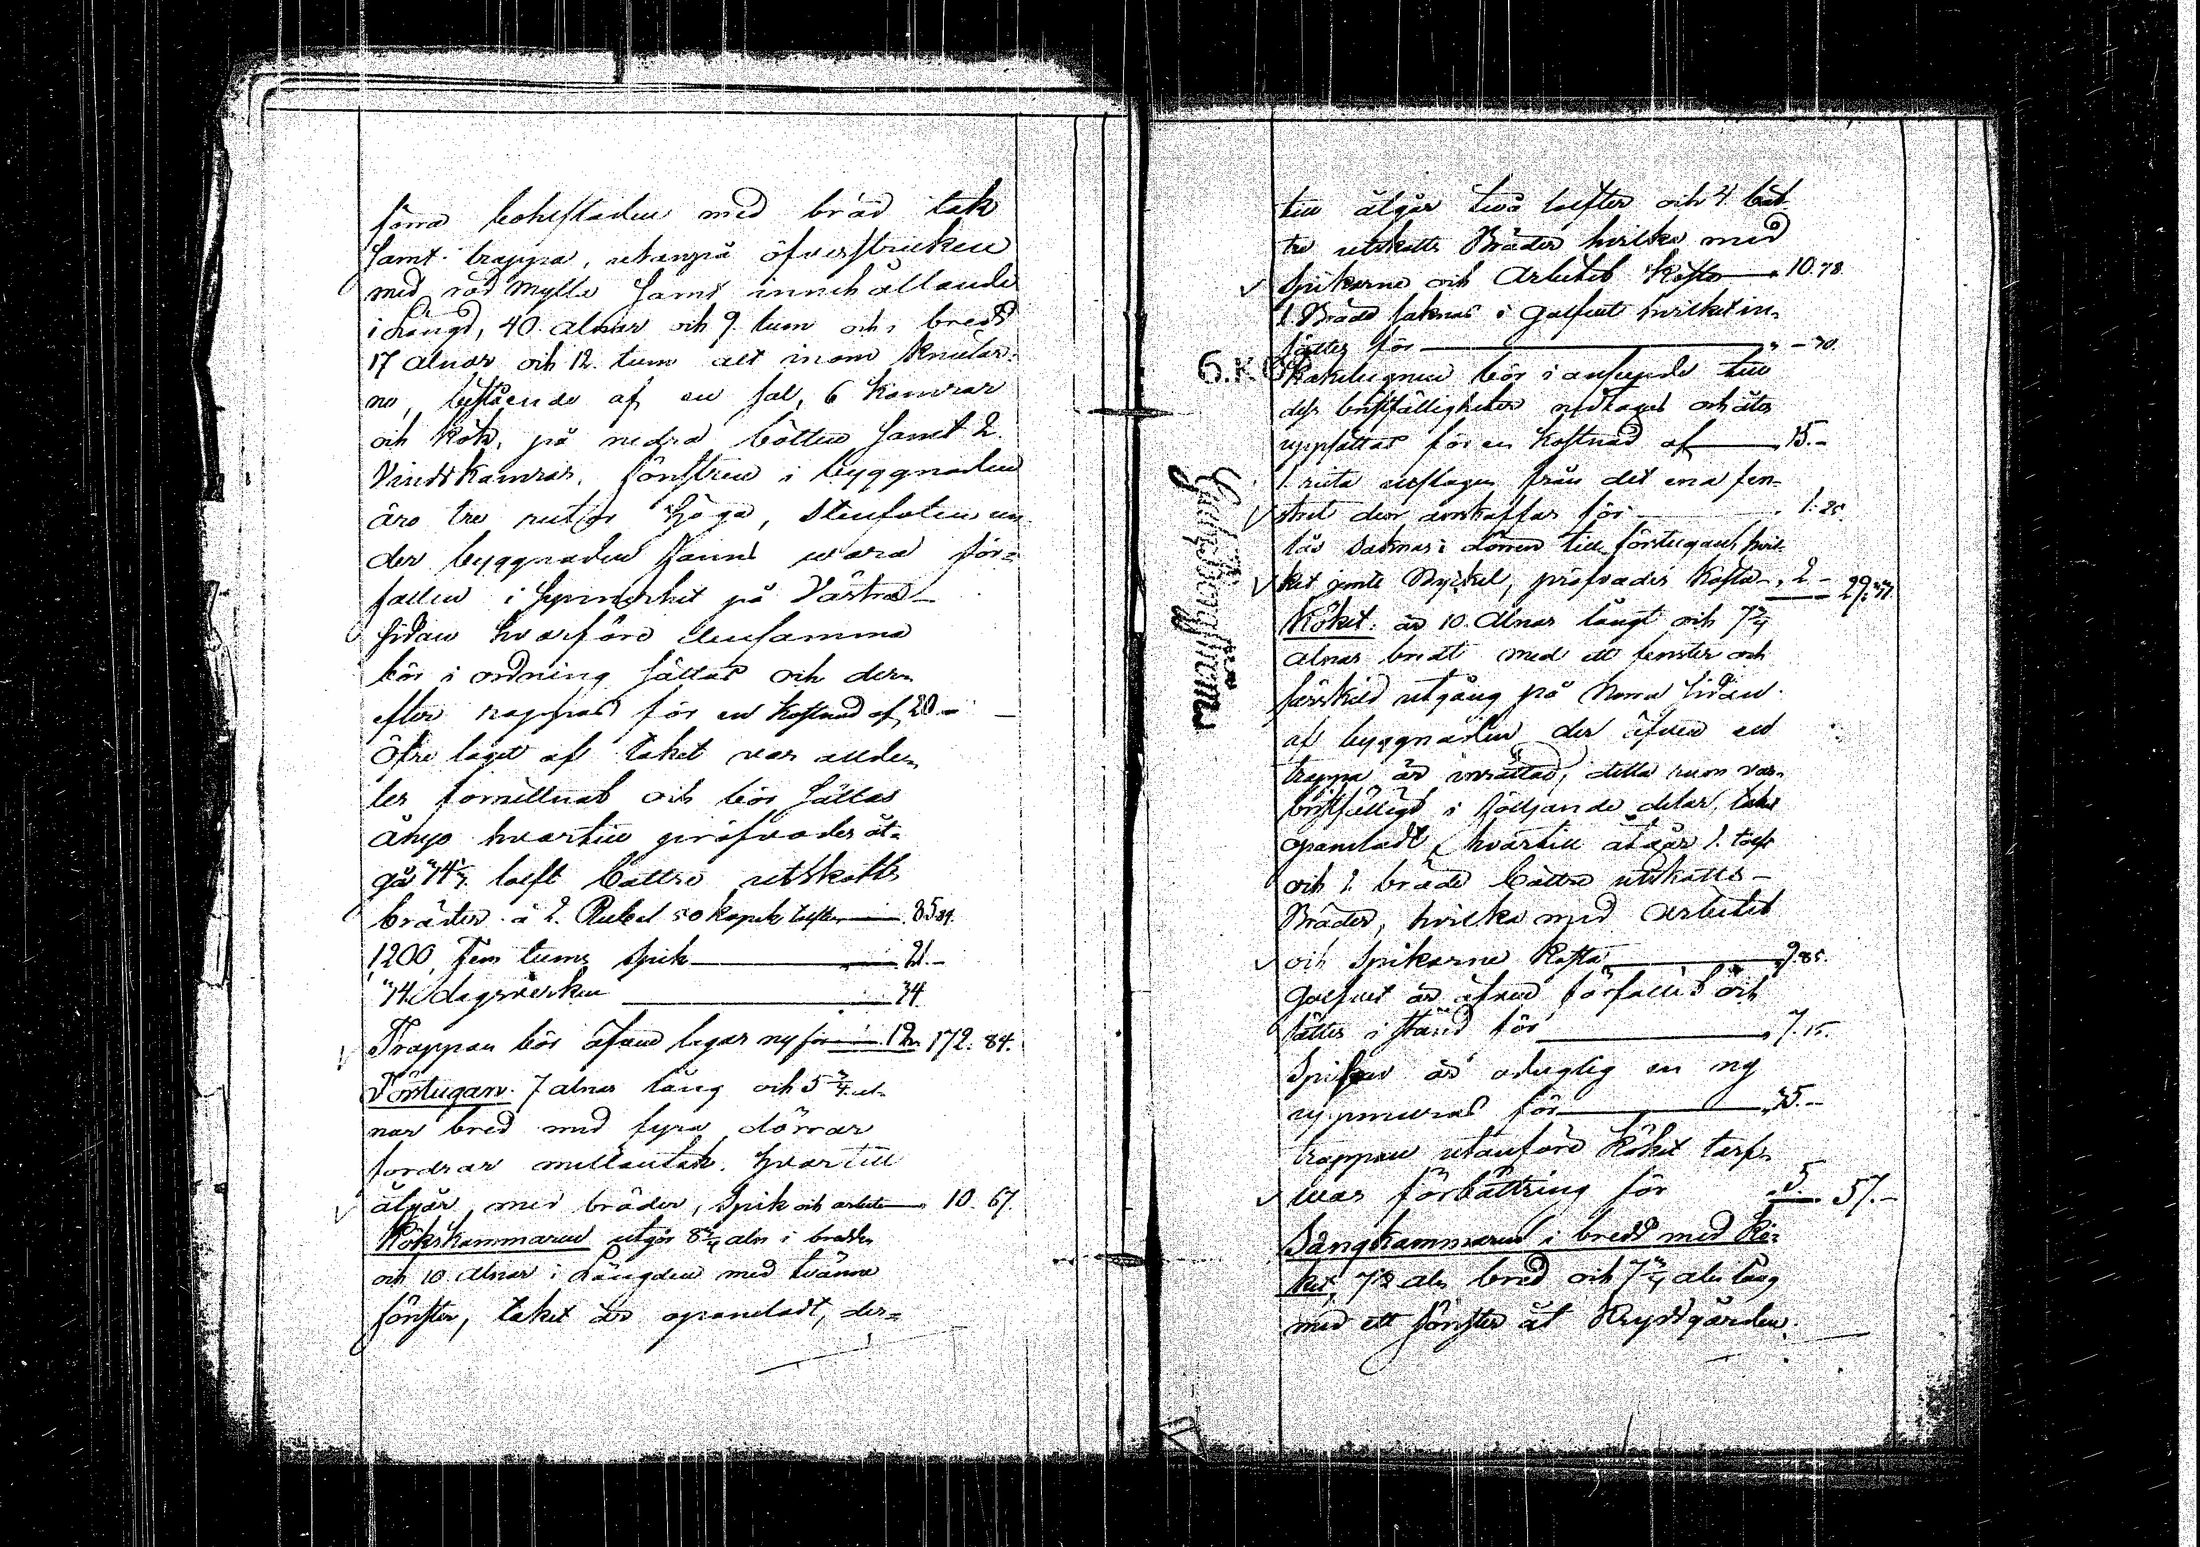 förra bokestaden med bräd tak
samt trappa, utanpå öfverstruken
med röd mylla samt innehållande
i Längd, 40. alnar och 9. tum och i bredd
17 alnar och 12. tum alt inom knutar-
ne, bestående af en sal, 6 Kamrar
och Kök, på nedra botten samt 2.
Vindskamrar, fönstren i byggnaden
äro tre rutor höga, Stenfoten un
der byggnaden fanns wara för-
fallen i synnerhet på Västra
sidan hvarföre densamma
bör i ordning sättas och der-
efter rappas för en Kostnad af 20 -
Öfre laget af taket var allde-
les förmultnat och bör sättas
ånyo hvartill pröfvades åt-
gå tolft bättre utskotts
bräder à 2. Rubel 50 kopek tolften 85
1200 Fem tums spik 21.-
34 dagsverken 34
Trappan bör äfven lagas ny för 12. 172. 84.
Förstugan. 7 alnar lång och 5 3/4 al-
nar bred med fyra dörrar
fordrar mellantak. hvartill
åtgår, med bräder, Spik och arbete 10. 67.
Kökskammaren utgör 8 3/4 aln i bredden
och 10. alnar i Längden med tvänne
fönster, taket är opaneladt, der-
till åtgår två tolfter och 4. bät-
tre utskotts Bräder hvilka med
Spikarne och Arbetet Kosta 10.78.
1. Bräde saknas i Golfvet hvilket in-
sättes för - 30.
6.KO
Kakelugnen bör i anseende till
dess bristfälligheter nedtagas och åter
uppsättas för en Kostnad af 15.-
1. ruta urslagen från det ena fen-
stret den anskaffas för 1. 25.
lås saknas i dörren till förstugan, hvil-
ket jemte Nyckel, pröfvades Kosta 2 - 29.
Köket: är 10. Alnar långt och 7 3/4
alnar bredt med ett fenster och
särskild utgång på Norra sidan
af byggnaden der äfven en
trappa är inrättad, detta rum var
bristfälligt i följande delar, taket
opaneladt, hvartill åtgår 1. tolft
och 2. bräde bättre utskotts-
Bräder, hvilka med arbetet
och Spikarne Kosta 9.85.
Golfvet är äfven förfallet och
sättes i stånd för 7.15.
Spiseln är oduglig en ny
uppmuras för 35.-
trappan utanföre Köket tarf-
war förbättring för 5. 57.-
Sängkammaren i bredd med Kö-
ket, aln bred och 7 3/4 aln lång
med ett fönster åt Krydgården.